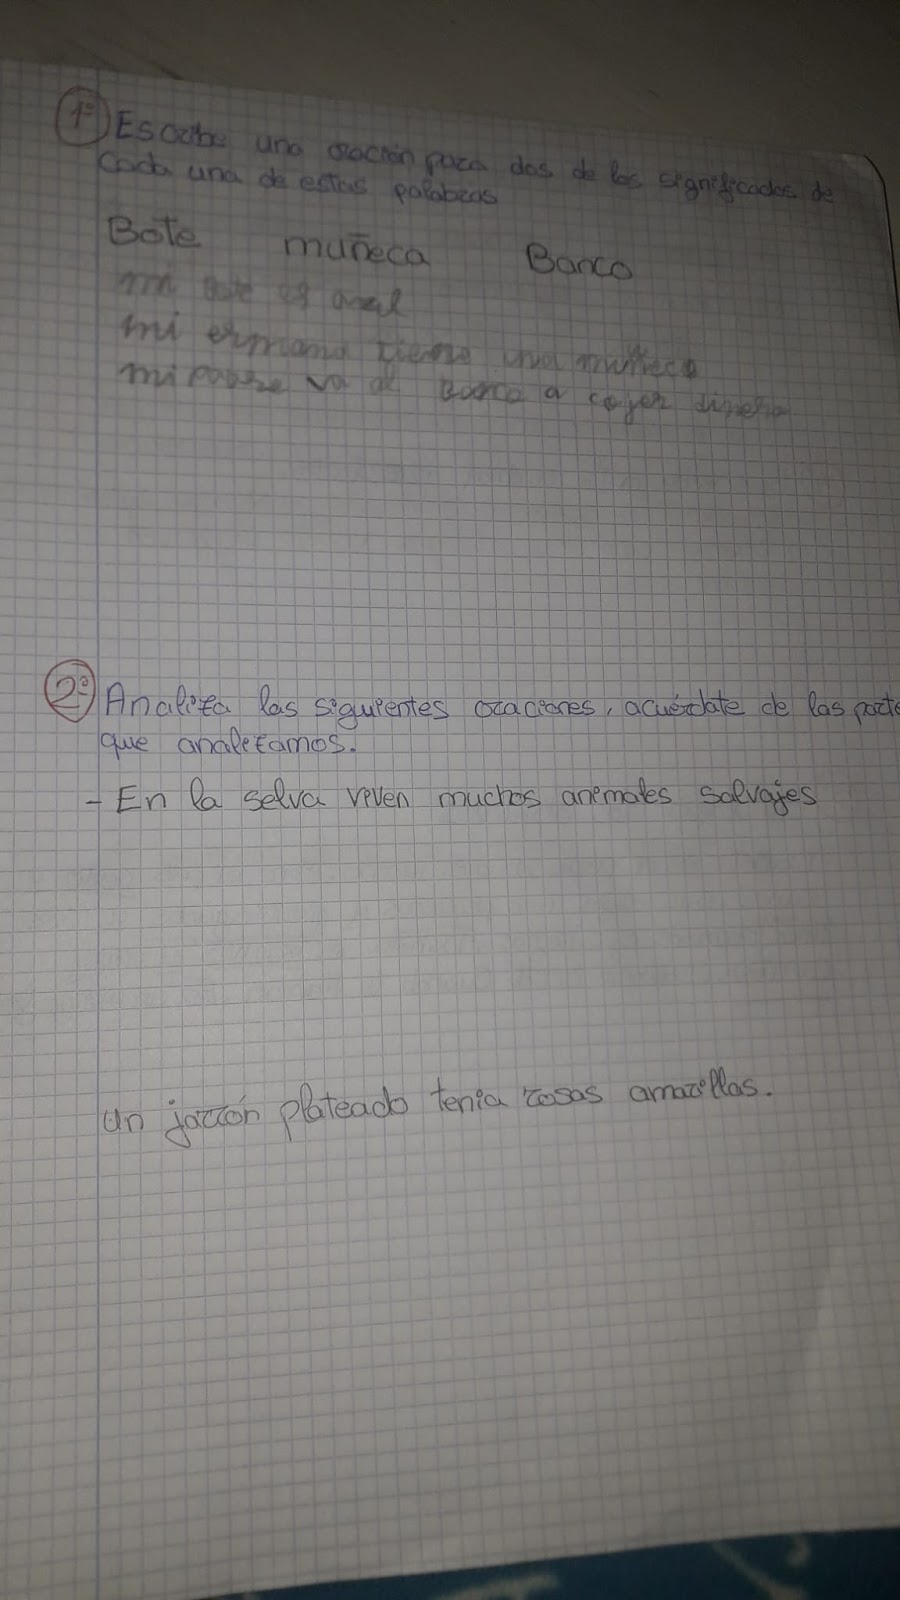 1º Escribe una oración para dos de los significados de
cada una de estas palabras
Bote muñeca Banco
mi bote es azul
mi ermana tiene una muñeca
mi padre va al Banco a cojer dinero
2º Analiza las siguientes oraciones, acuérdate de las parte
que analizamos.
- En la selva viven muchos animales salvajes
Un jarrón plateado tenia rosas amarillas.